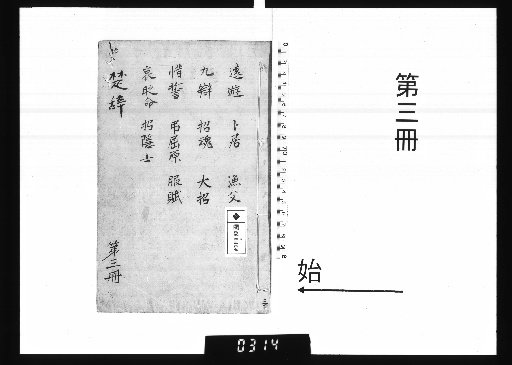 第三冊
始
遠遊 卜居 漁父
九辯 招魂 大招
惜誓 弔屈原 服賦
哀時命 招隱士
楚辞
第三冊
0314